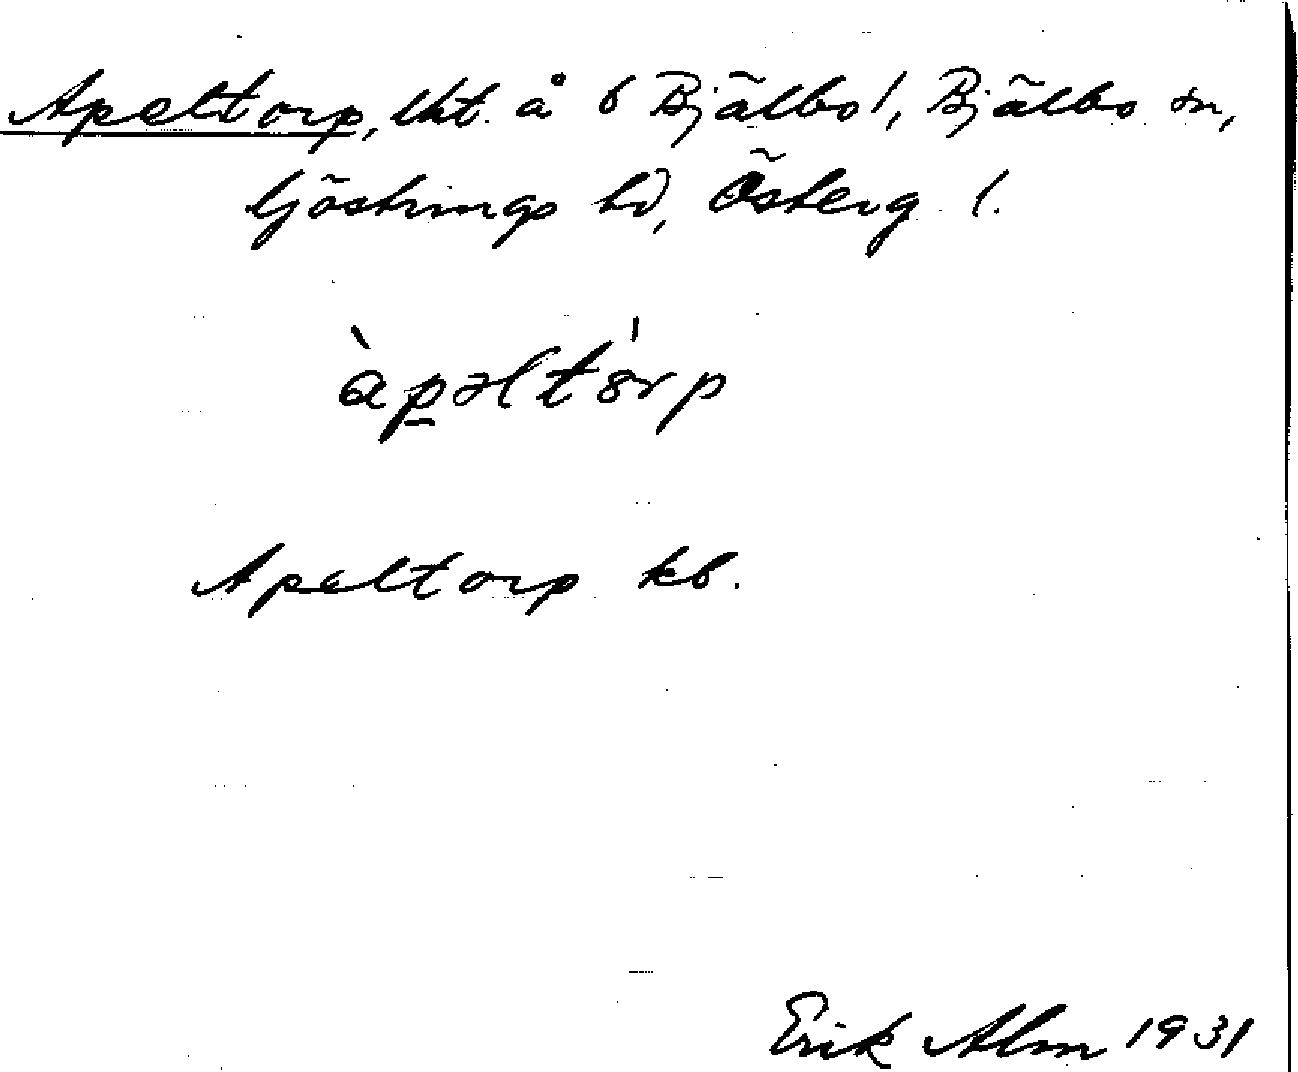 Apeltorp, lht. å 6 Bjälbo 1, Bjälbo sn,
Göstrings hd, Österg l.
àpəltórp
Apeltorp kb.
Erik Alm 1931